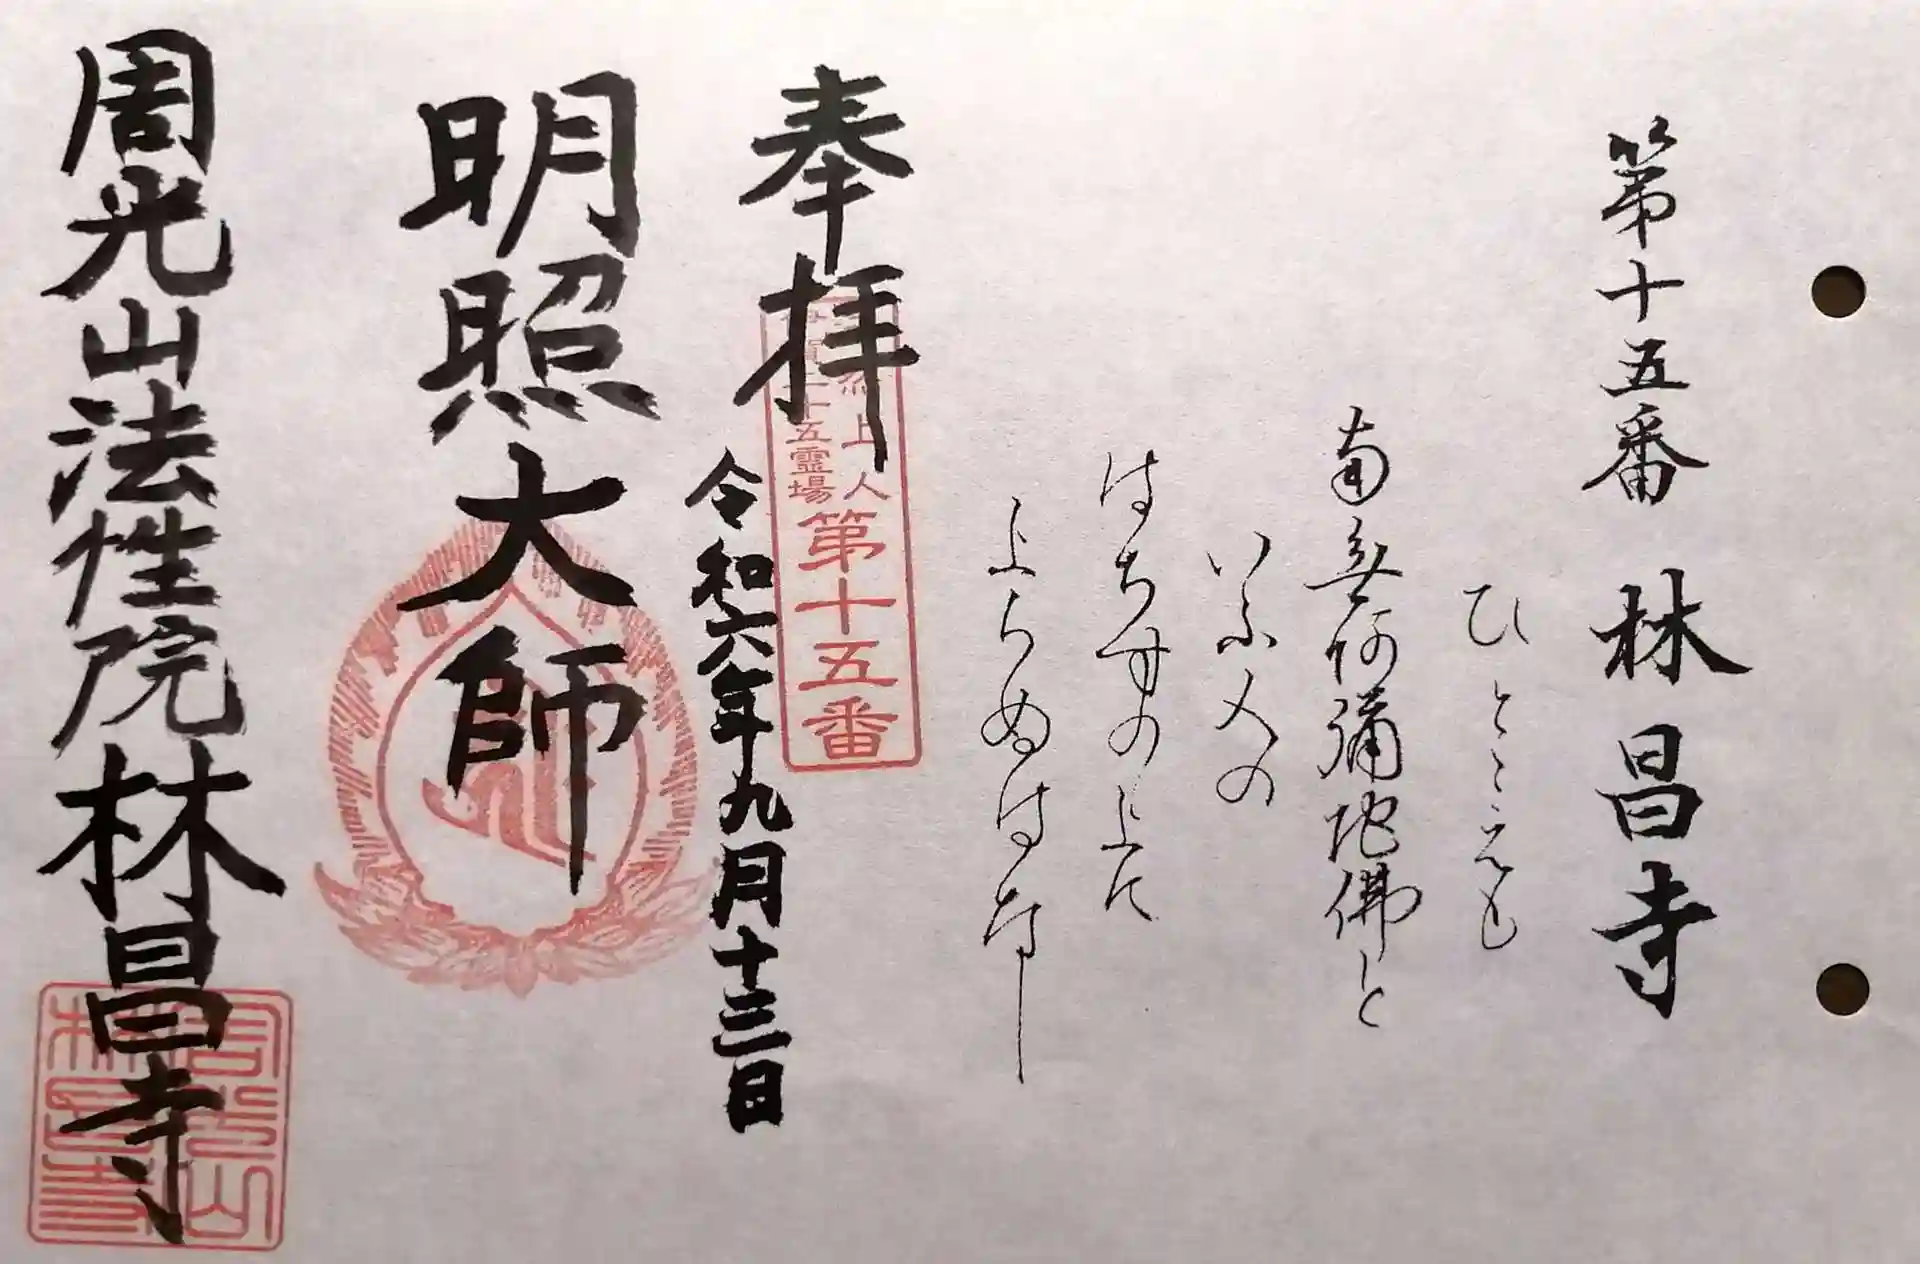 第十五番 林昌寺
ひとこゑも
南無阿彌陀佛と
いふ人の
はちすの上に
上らぬはなし
奉拝
法然上人
二十五霊場
第十五番
令和六年九月十三日
明照大師
周光山法性院林昌寺
周光山
林昌寺